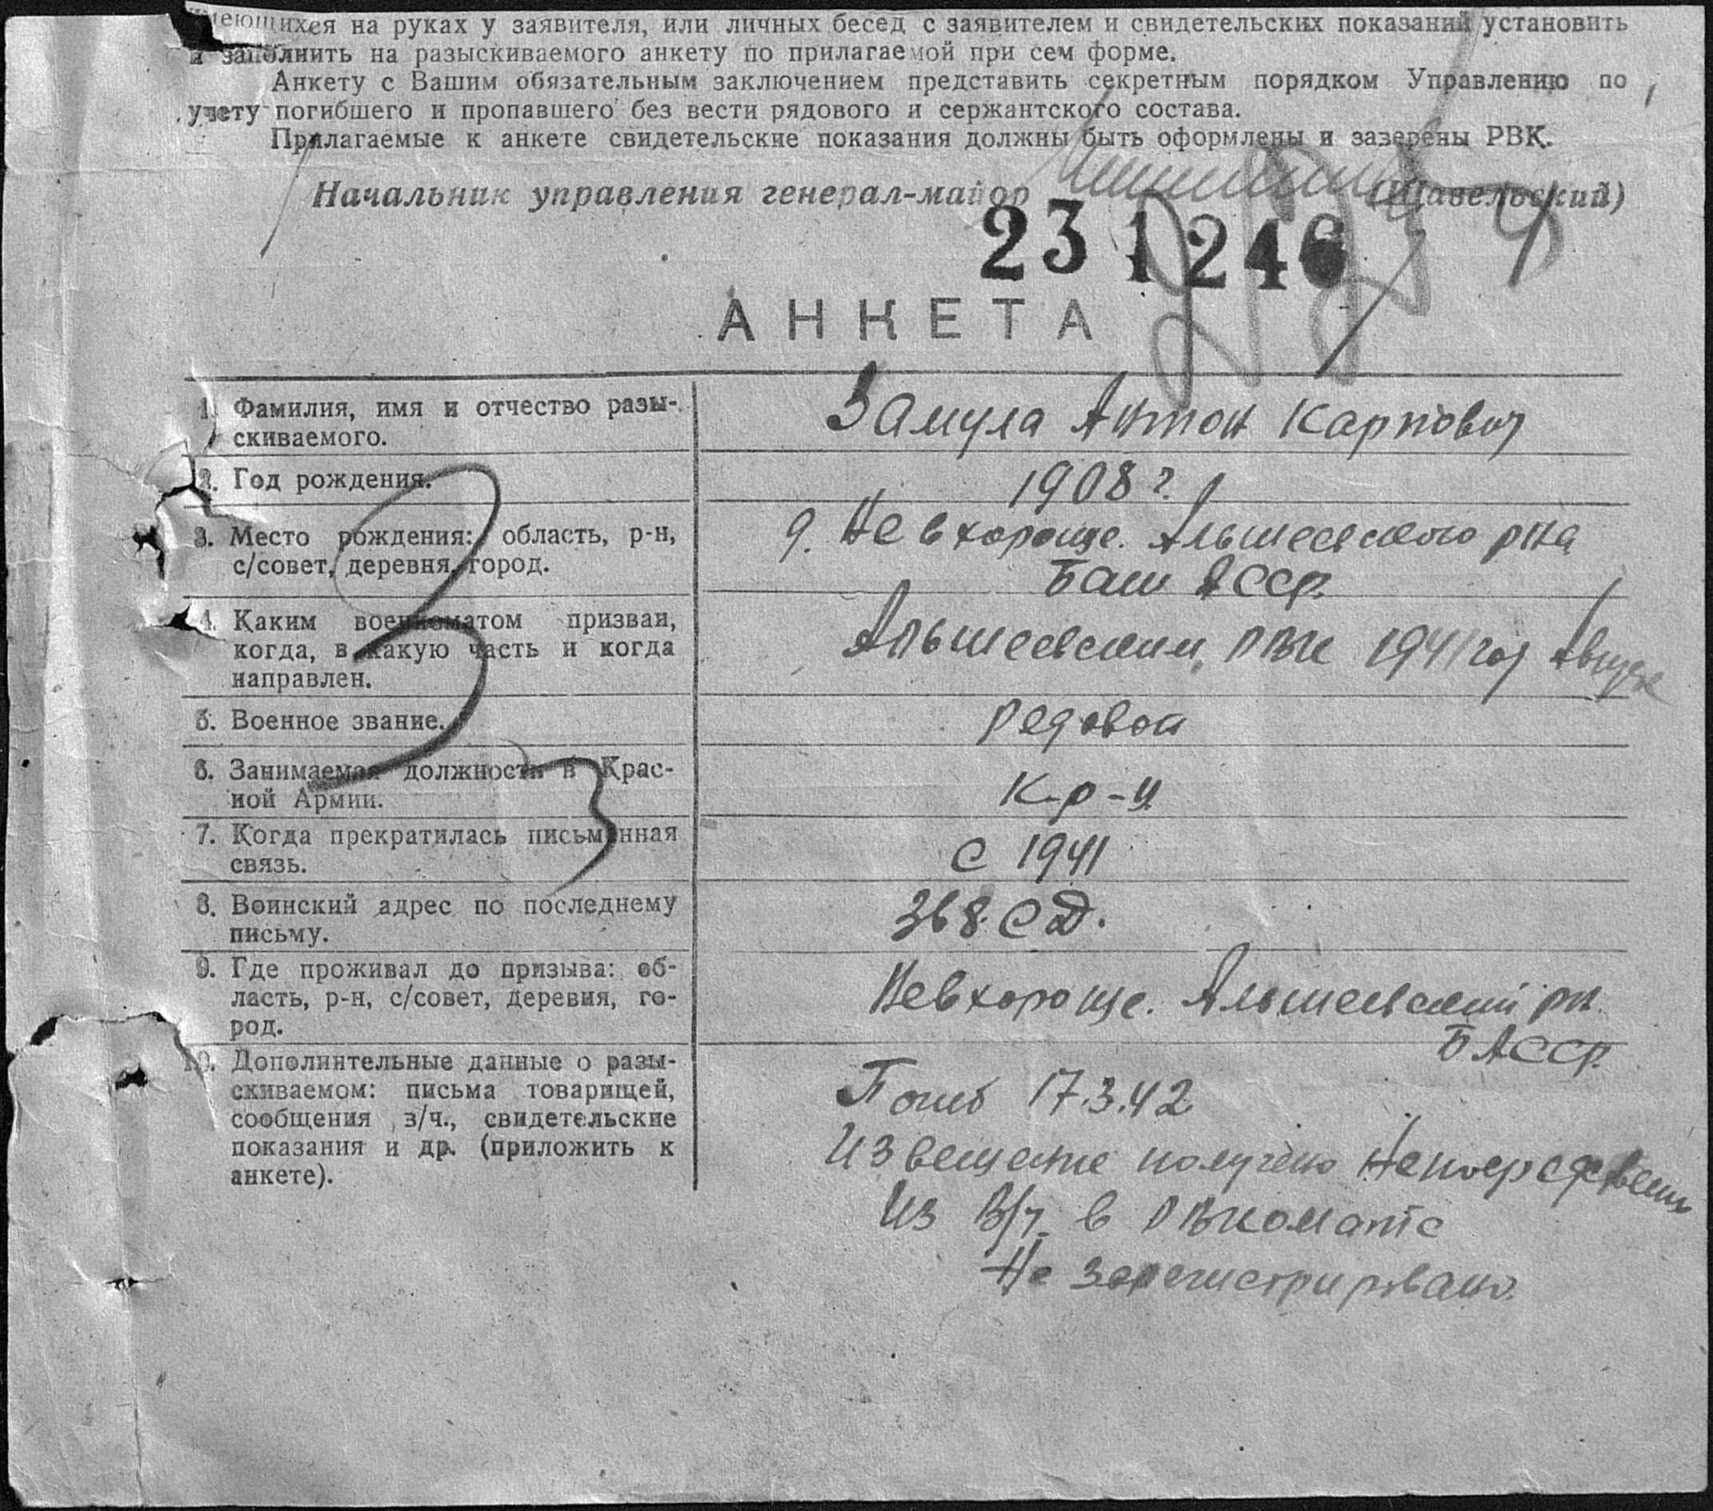 имеющихся на руках у заявителя, или личных бесед с заявителем и свидетельских показаний установить
и заполнить на разыскиваемого анкету по прилагаемой при сем форме.
Анкету с Вашим обязательным заключением представить секретным порядком Управлению по
учету погибшего и пропавшего без вести рядового и сержантского состава.
Прилагаемые к анкете свидетельские показания должны быть оформлены и заверены РВК.
Начальник управления генерал-майор (Шавельский)
231246
АНКЕТА
1. Фамилия, имя и отчество разы-
скиваемого.
Замула Антон Карпович
2. Год рождения.
1908 г.
3. Место рождения: область, р-н,
с/совет, деревня, город.
д. Невхороще. Альшеевского р-на
Баш АССР.
4. Каким военкоматом призван,
когда, в какую часть и когда
направлен.
Альшеевским РВК 1941 год Август
5. Военное звание.
Редовой
6. Занимаемая должность в Крас-
ной Армии.
К-р-ц
7. Когда прекратилась письменная
связь.
С 1941
8. Воинский адрес по последнему
письму.
368 СД.
9. Где проживал до призыва: об-
ласть, р-н, с/совет, деревня, го-
род.
Невхороще. Альшеевский рн.
БАССР.
10. Дополнительные данные о разы-
скиваемом: письма товарищей,
сообщения з/ч., свидетельские
показания и др. (приложить к
анкете).
Погиб 17.3.42
Извещение получено непосредствени
из в/ч. в РВкомате
Не зарегистрировано.